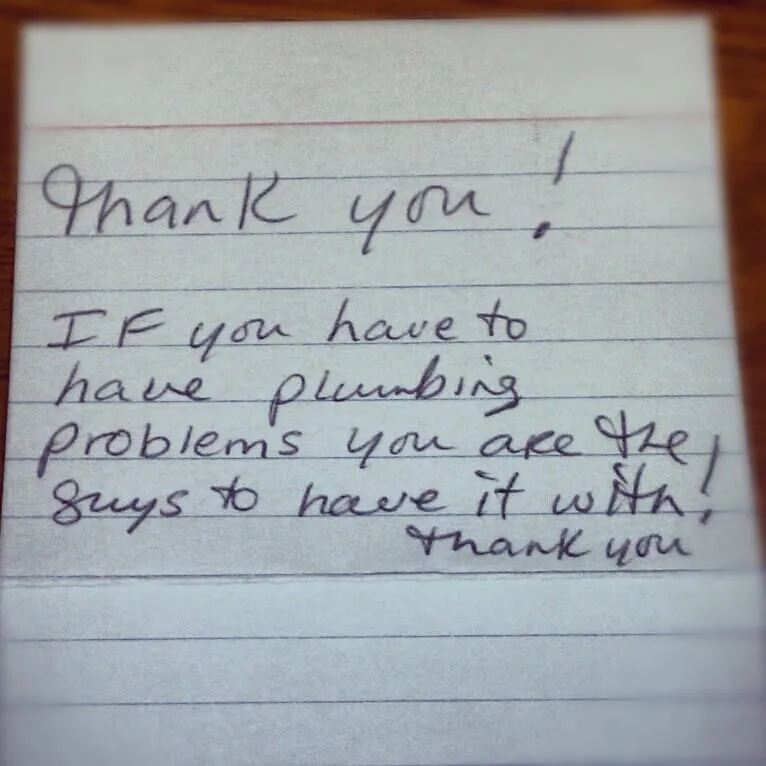 Thank you!
IF you have to
have plumbing
problems you are the
guys to have it with!
thank you